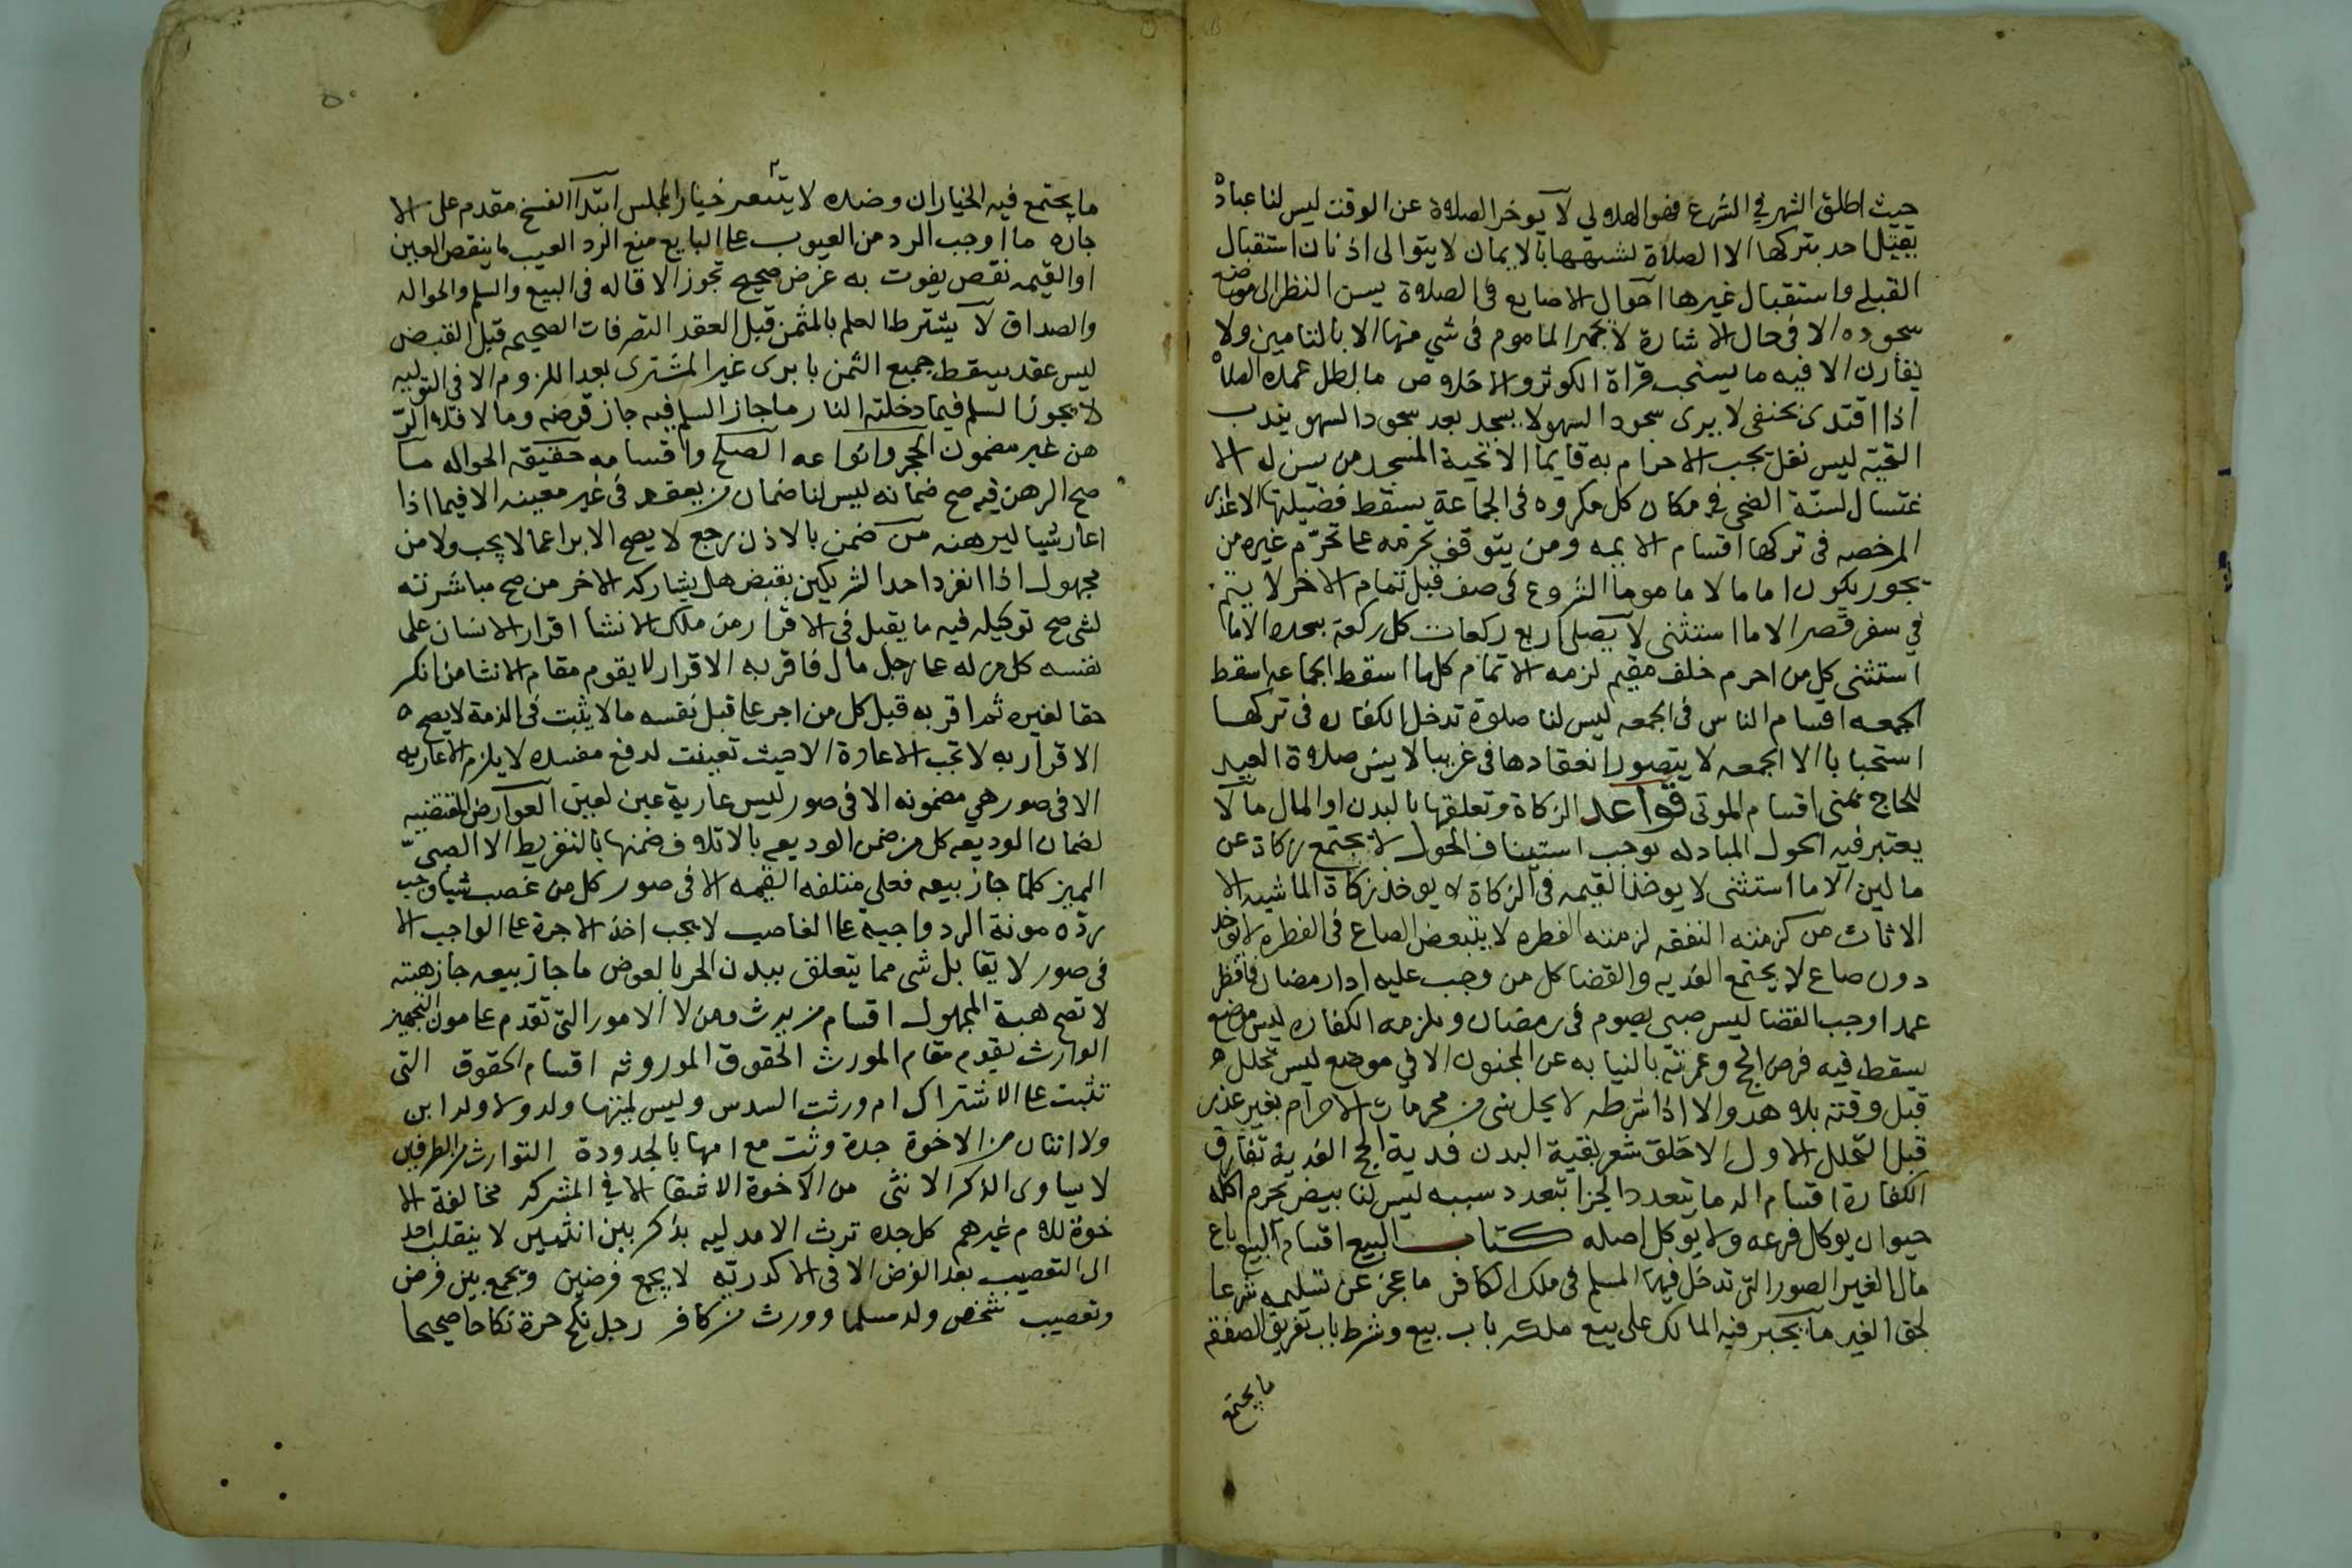 حيث اطلق الشهر في الشرع فهو الهلالي لا يوخر الصلاة عن الوقت ليس لنا عبادة
يقتل احد بتركها الا الصلاة لشبهها بالايمان لا يتوالى اذنان استقبال
القبلة واستقبال غيرها احوال الاصابع في الصلاة يسن النظر الى موضع
سجوده الا في حال الاشارة لا يجهر الماموم في شي منها الا بالتامين ولا
يقارن الا فيه ما يستحب قراة الكوثر والاخلاص ما ابطل عمده الصلاة
اذا اقتدى بحنفي لا يرى سجود السهو لا يسجد بعد سجود السهو يندب
التحية ليس نفل يجب الاحرام به قايما الا تحية المسجد من سن له الا
غتسال لسنة الضحى في مكان كل مكروه في الجماعة يسقط فضيلتها الاعذار
المرخصه في تركها اقسام الايمه ومن يتوقف تحرمه على تحرم غيره من
يجوز يكون اماما لا ماموما الشروع في صف قبل تمام الاخر لا يتم
في سفر قصر الا ما استثنى لا يصلي اربع ركعات كل ركعة بسجدة الا ما
استثنى كل من احرم خلف مقيم لزمه الاتمام كلما اسقط الجماعه اسقط
الجمعه اقسام الناس في الجمعه ليس لنا صلوة تدخل الكفاره في تركها
استحبابا الا الجمعه لا يتصور انعقادها في غريبا لا يسن صلاة العيد
للحاج بمنى اقسام الموتى قواعد الزكاة وتعلقها بالبدن او المال ما لا
يعتبر فيه الحول المبادله توجب استيناف الحول لا يجتمع زكاة عن
مالين الا ما استثنى لا يوخذ القيمه في الزكاة لا يوخذ زكاة الماشيه الا
الاناث من لزمته النفقه لزمته الفطره لا يتبعض الصاع في الفطره لا يوخذ
دون صاع لا يجتمع الفديه والقضا كل من وجب عليه ادا رمضان فافطر
عمدا وجب القضا ليس صبي يصوم في رمضان ويلزمه الكفاره ليس موضع
يسقط فيه فرض الحج وعمرته بالنيابه عن المجنون الا في موضع ليس تحلل
قبل وقته بلا هدي الا اذا شرطه لا يحل شي من محرمات الاحرام بغير عذر
قبل التحلل الاول الا حلق شعر بقية البدن فدية الحج الفدية تفارق
الكفارة اقسام الدما يتعدد الجزا بتعدد سببه ليس لنا بيض يحرم اكله
حيوان يوكل فرعه ولا يوكل اصله كتاب البيع اقسام البيع باع
مال الغير الصور التي تدخل فيها المسلم في ملك الكافر ما عجز عن تسليمه شرعا
لحق الغير ما يجبر فيه المالك على بيع ملكه باب بيع وشرط باب تفريق الصفقه
ما يجتمع
ما يجتمع فيه الخياران وضده لا يتبعض خيار المجلس ابتدا الفسخ مقدم على الا
جازه ما اوجب الرد من العيوب على البايع منع الرد العيب ما ينقص العين
او القيمه نقص يفوت به غرض صحيح تجوز الاقاله في البيع والسلم والحواله
والصداق لا يشترط العلم بالمثمن قبل العقد التصرفات الصحيحه قبل القبض
ليس عقد يسقط جميع الثمن بابرى غير المشتري بعد اللزوم الا في التوليه
لا يجوز السلم فيما دخلته النار ما جاز السلم فيه جاز قرضه وما لا فلا الر
هن غير مضمون الحجر وانواعه الصلح واقسامه حقيقه الحواله ما
صح الرهن فيه صح ضمانه ليس لنا ضمان بعقد في غير معينه الا فيما اذا
اعار شيا ليرهنه من ضمن بالاذن رجع لا يصح الابرا عما لا يجب ولا من
مجهول اذا انفرد احد الشريكين بقبض هل يشاركه الاخر من صح مباشرته
لشي صح توكيله فيه ما يقبل في الاقرار من ملك الانشا اقرار الانسان على
نفسه كل من له على رجل مال فاقر به الاقرار لا يقوم مقام الانشا من انكر
حقا لغيره ثم اقر به قبل كل من اجر على قبل نفسه ما لا يثبت في الذمة لا يصح
الاقرار به لا تجب الاعارة الا حيث تعينت لدفع مفسده لا يلزم العاريه
الا في صور هي مضمونه الا في صور ليس عارية عين لعين العوارض المقتضيه
لضمان الوديعه كل من ضمن الوديعه بالاتلاف ضمنها بالتفريط الا الصبي
المميز كلما جاز بيعه فعلى متلفه القيمه الا في صور كل من غصب شيا وجب
رده مونة الرد واجبة على الغاصب لا يجب اخذ الاجرة على الواجب الا
في صور لا يقابل شي مما يتعلق ببدن الحر بالعوض ما جاز بيعه جاز هبته
لا تصح هبة المجهول اقسام من يرث ومن لا الامور التي تقدم على مون التجهيز
الوارث يقوم مقام المورث الحقوق الموروثه اقسام الحقوق التي
تثبت على الاشتراك ام ورثت السدس وليس لميتها ولد ولا ولد ابن
ولا اثنان من الاخوة جدة ورثت مع امها بالجدودة التوارث من الطرفين
لا يساوى الذكر الانثى من الاخوة الاشقا الا في المشركه مخالفة الا
خوة للام غيرهم كل جده ترث الا مدليه بذكر بين انثيين لا ينقلب احد
الى التعصيب بعد الفرض الا في الاكدريه لا يجمع فرضين ويجمع بين فرض
وتعصيب شخص ولد مسلما وورث من كافر رجل نكح حرة نكاحا صحيحا